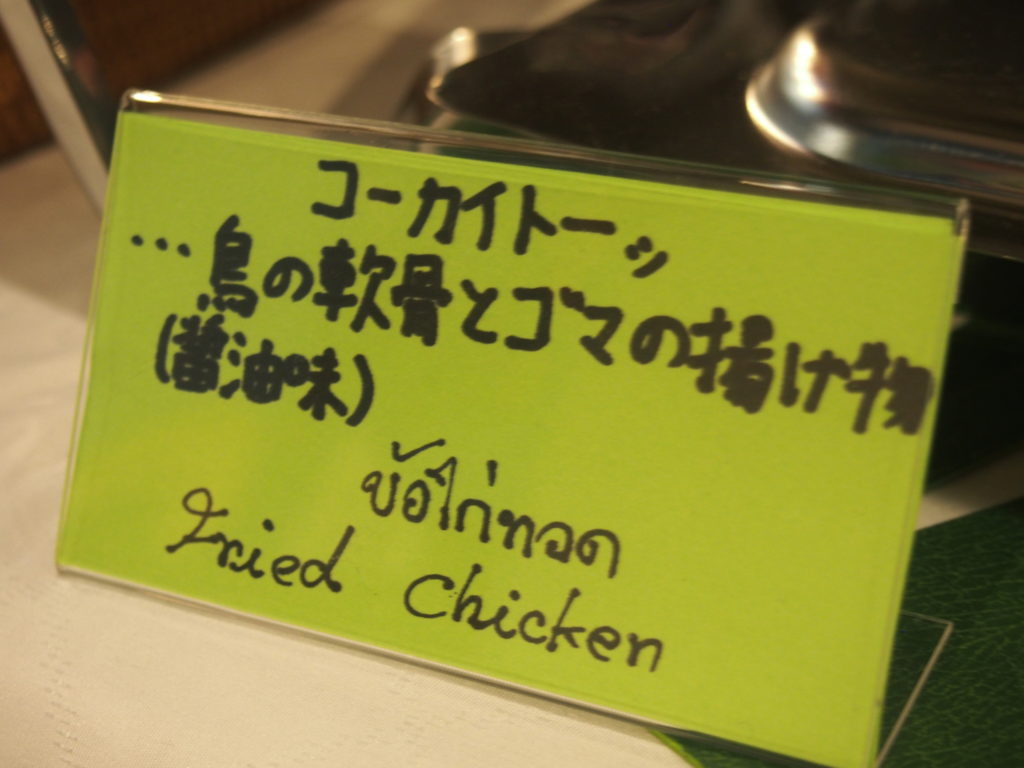 コーカイトーッ
...鳥の軟骨とゴマの揚げ物
(醤油味)
ข้อไก่ทอด
Fried Chicken